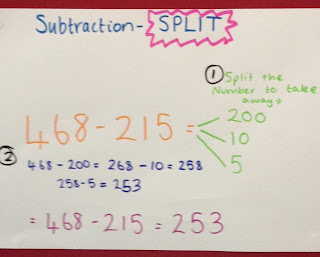 Subtraction- SPLIT
① Split the
Number to take
away→
468-215=
200
10
5
② 468-200=268-10=258
258-5=253
=468-215=253